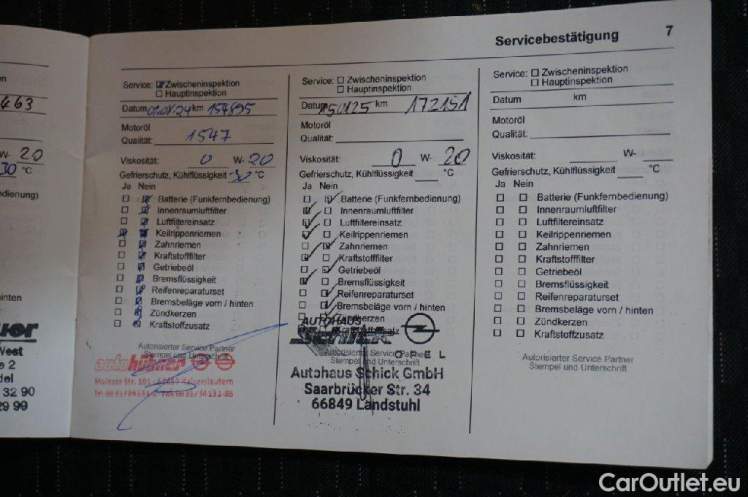 Servicebestätigung 7
463
W- 20
30 °C
dienung)
inten
West
e 2
del
32 90
29 99
Service: Zwischeninspektion
Hauptinspektion
Datum km 154895
Motoröl
Qualität: 1547
Viskosität: 0 W- 20
Gefrierschutz, Kühlflüssigkeit °C
Ja Nein
Batterie (Funkfernbedienung)
Innenraumluftfilter
Luftfiltereinsatz
Keilrippenriemen
Zahnriemen
Kraftstofffilter
Getriebeöl
Bremsflüssigkeit
Reifenreparaturset
Bremsbeläge vorn / hinten
Zündkerzen
Kraftstoffzusatz
Autorisierter Service Partner
Stempel und Unterschrift
autohübner
Service: Zwischeninspektion
Hauptinspektion
Datum 150125 km 172151
Motoröl
Qualität:
Viskosität: 0 W- 20
Gefrierschutz, Kühlflüssigkeit °C
Ja Nein
Batterie (Funkfernbedienung)
Innenraumluftfilter
Luftfiltereinsatz
Keilrippenriemen
Zahnriemen
Kraftstofffilter
Getriebeöl
Bremsflüssigkeit
Reifenreparaturset
Bremsbeläge vorn / hinten
Zündkerzen
Kraftstoffzusatz
AUTOHAUS
Schick
OPEL
Autorisierter Service Partner
Stempel und Unterschrift
Autohaus Schick GmbH
Saarbrücker Str. 34
66849 Landstuhl
Service: Zwischeninspektion
Hauptinspektion
Datum km
Motoröl
Qualität:
Viskosität: W-
Gefrierschutz, Kühlflüssigkeit °C
Ja Nein
Batterie (Funkfernbedienung)
Innenraumluftfilter
Luftfiltereinsatz
Keilrippenriemen
Zahnriemen
Kraftstofffilter
Getriebeöl
Bremsflüssigkeit
Reifenreparaturset
Bremsbeläge vorn / hinten
Zündkerzen
Kraftstoffzusatz
Autorisierter Service Partner
Stempel und Unterschrift
CarOutlet.eu